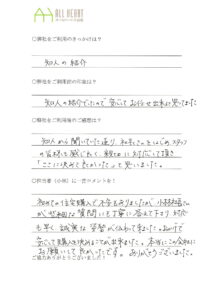 ALL HEART
◇弊社をご利用のきっかけは?
知人の紹介
◇弊社をご利用前の印象は?
知人の紹介でしたので安心してお任せ出来ると思ってました
◇弊社をご利用後のご感想は?
知人から聞いていた通り、社長さんをはじめスタッフ
の皆様も感じ良く、親切に対応して頂き
「ここに決めて良かった」と思いました。
◇担当者(小林)に一言コメントを!
初めての住宅購入で不安もありましたが、小林様
が、些細な質問にも丁寧に答えて下さり 対応
も早く、誠実な姿勢が伝わって来ました。おかげで
安心して購入を決めることが出来ました。本当にこの会社に
お願いして良かったです。ありがとうございました。
ご協力ありがとうございました!